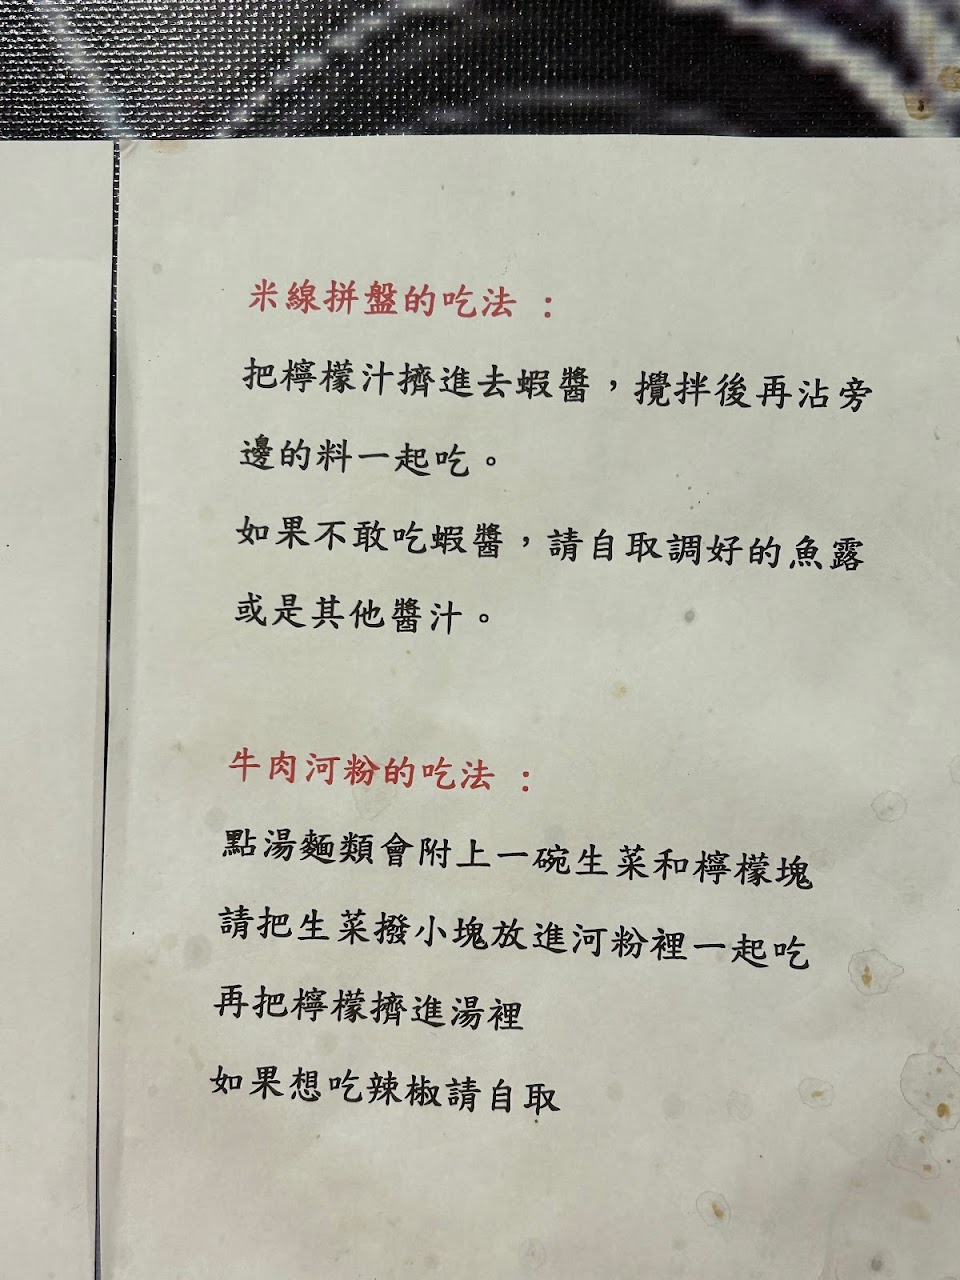 米線拼盤的吃法：
把檸檬汁擠進去蝦醬，攪拌後再沾旁
邊的料一起吃。
如果不敢吃蝦醬，請自取調好的魚露
或是其他醬汁。
牛肉河粉的吃法：
點湯麵類會附上一碗生菜和檸檬塊
請把生菜撥小塊放進河粉裡一起吃
再把檸檬擠進湯裡
如果想吃辣椒請自取